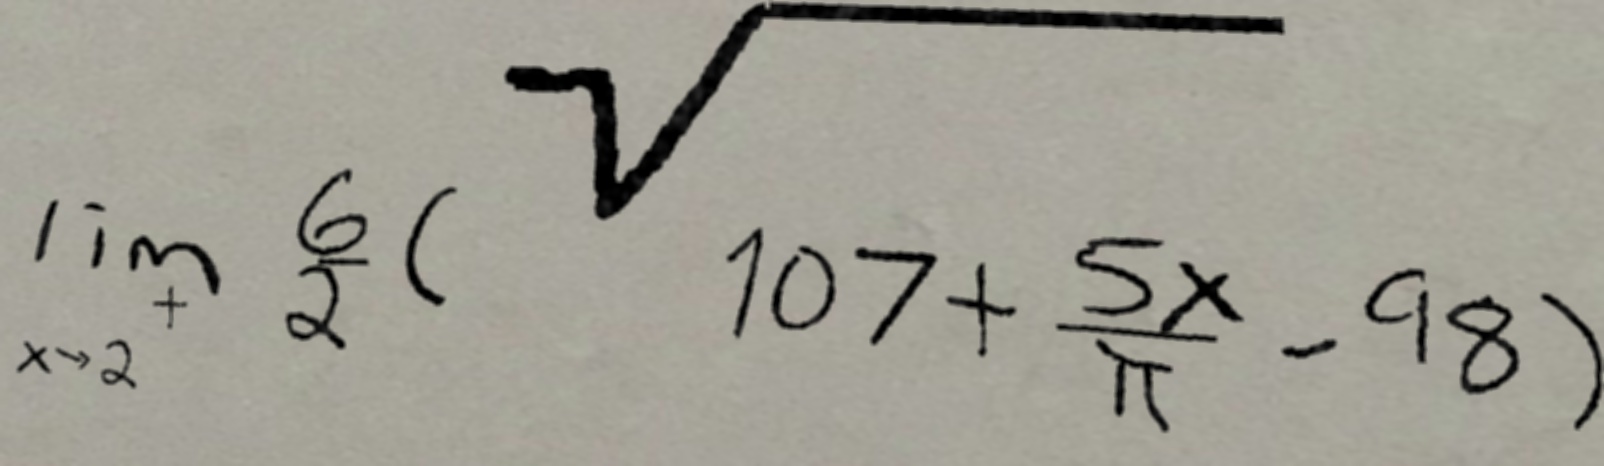 lim x→2⁺ 6/2 ( √(107 + 5x/π) - 98 )